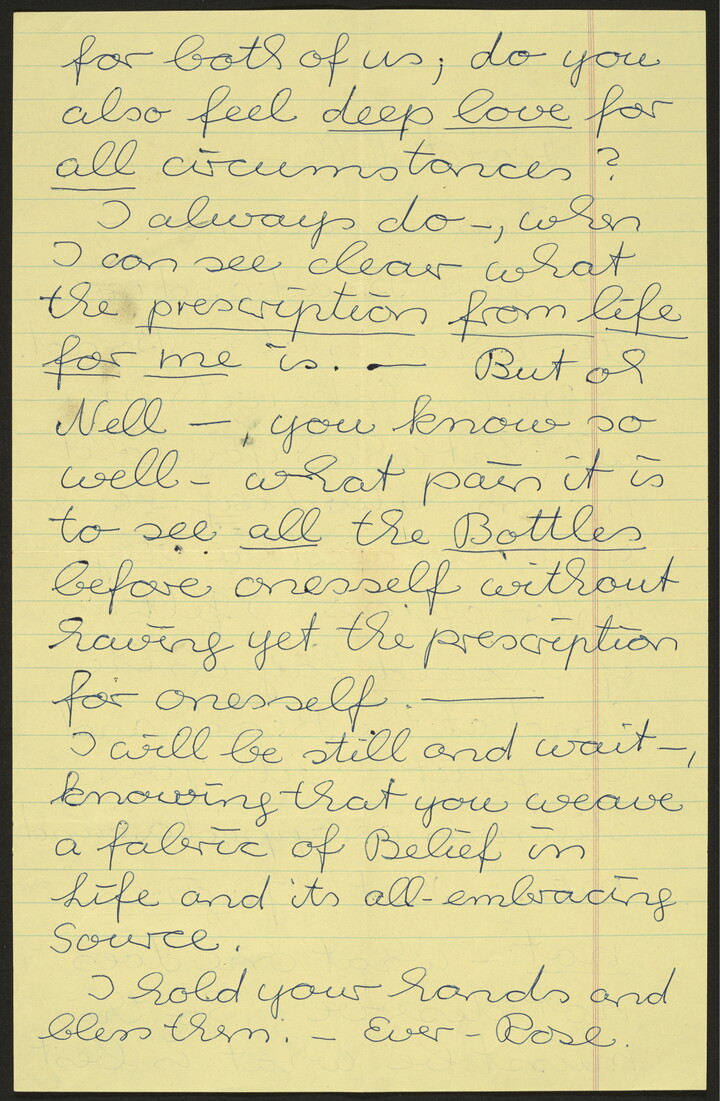 for both of us; do you
also feel deep love for
all circumstances?
I always do -, when
I can see clear what
the prescription from life
for me is. — But oh
Nell —, you know so
well - what pain it is
to see all the Bottles
before onesself without
having yet the prescription
for onesself. ———
I will be still and wait -,
knowing that you weave
a fabric of Belief in
Life and its all-embracing
Source.
I hold your hands and
bless them. - Ever - Rose.